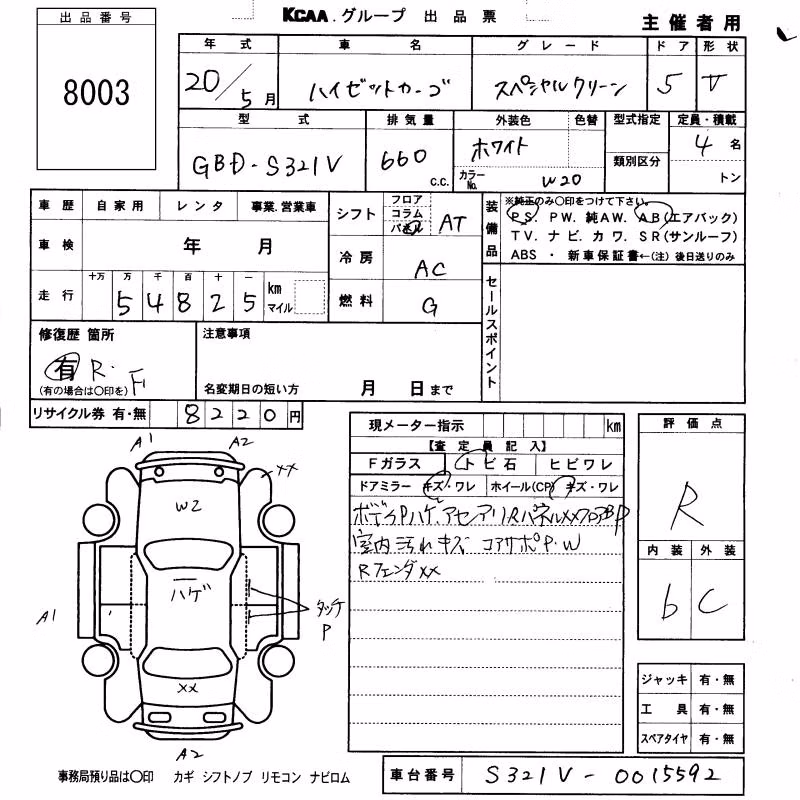 KCAA.グループ 出品票
主催者用
出品番号
8003
年式 車名 グレード ドア 形状
20/5月 ハイゼットカーゴ スペシャルクリーン 5 V
型式 排気量 外装色 色替 型式指定 定員・積載
GBD-S321V 660 c.c. ホワイト 類別区分 4名
カラーNo. W20 トン
車歴 自家用 レンタ 事業.営業車
車検 年 月
走行 十万 万 千 百 十 一
54825 km マイル
シフト フロア コラム パネル AT
冷房 AC
燃料 G
装備品
※純正のみ○印をつけて下さい。
PS. PW. 純AW. AB(エアバック)
TV. ナビ. カワ. SR(サンルーフ)
ABS ・ 新車保証書←(注)後日送りのみ
セールスポイント
修復歴 箇所
有 R・F
(有の場合は○印を)
注意事項
名変期日の短い方 月 日まで
リサイクル券 有・無 8220円
現メーター指示 km
【査定員記入】
Fガラス トビ石 ヒビワレ
ドアミラー キズ・ワレ ホイール(CP) キズ・ワレ
室内汚れキズ コアサポP.W
RフェンダXX
評価点
R
内装 外装
b C
ジャッキ 有・無
工具 有・無
スペアタイヤ 有・無
A1 A2
XX
W2
ハゲ
A1
タッチ
P
XX
A2
事務局預り品は○印 カギ シフトノブ リモコン ナビロム
車台番号 S321V-0015592